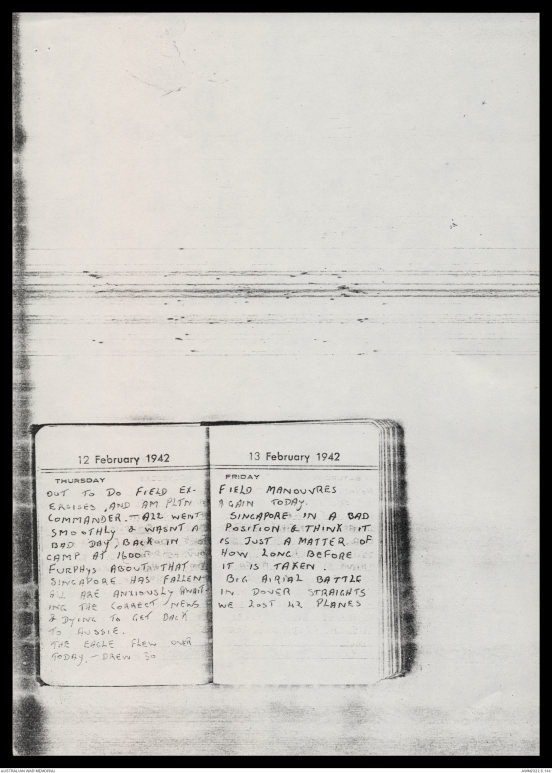 12 February 1942
THURSDAY
OUT TO DO FIELD EX-
ERCISES, AND AM PLTN
COMMANDER. — ALL WENT
SMOOTHLY & WASNT A
BAD DAY, BACK IN
CAMP AT 1600
FURPHYS ABOUT THAT
SINGAPORE HAS FALLEN
ALL ARE ANXIOUSLY AWAIT-
ING THE CORRECT NEWS
& DYING TO GET BACK
TO AUSSIE.
THE EAGLE FLEW OVER
TODAY. — DREW 50
13 February 1942
FRIDAY
FIELD MANOUVRES
AGAIN TODAY.
SINGAPORE IN A BAD
POSITION & THINK IT
IS JUST A MATTER OF
HOW LONG BEFORE
IT IS TAKEN.
BIG AIRIAL BATTLE
IN DOVER STRAIGHTS
WE LOST 42 PLANES
AUSTRALIAN WAR MEMORIAL